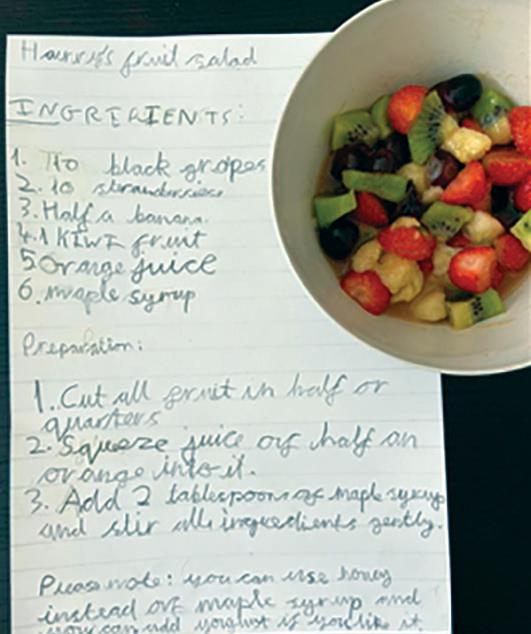 Harris's fruit salad
INGREDIENTS:
1. 10 black grapes
2. 10 strawberries
3. Half a banana.
4. 1 KIWI fruit
5. Orange juice
6. maple syrup
Preparation:
1. Cut all fruit in half or
quarters
2. Squeeze juice of half an
orange into it.
3. Add 2 tablespoons of maple syrup
and stir all ingredients gently.
Please note: you can use honey
instead of maple syrup and
you can add yoghurt if you like it.